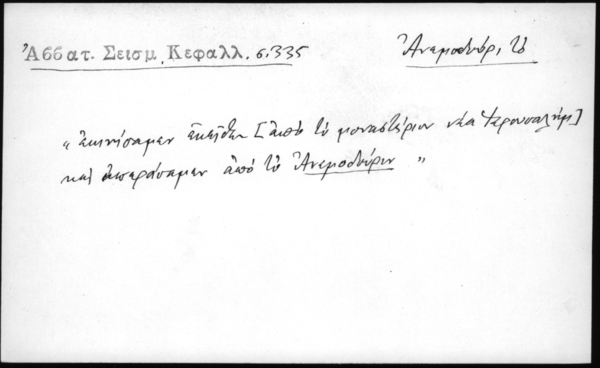 Ἀββατ. Σεισμ. Κεφαλλ. σ. 335
Ἀνεμοδούρ, τὸ
"ἐκινήσαμεν ἐκεῖθεν [ἀπὸ τὸ μοναστήριον νέα Ἱερουσαλήμ]
καὶ ἀπεράσαμεν ἀπὸ τὸ Ἀνεμοδούριν"